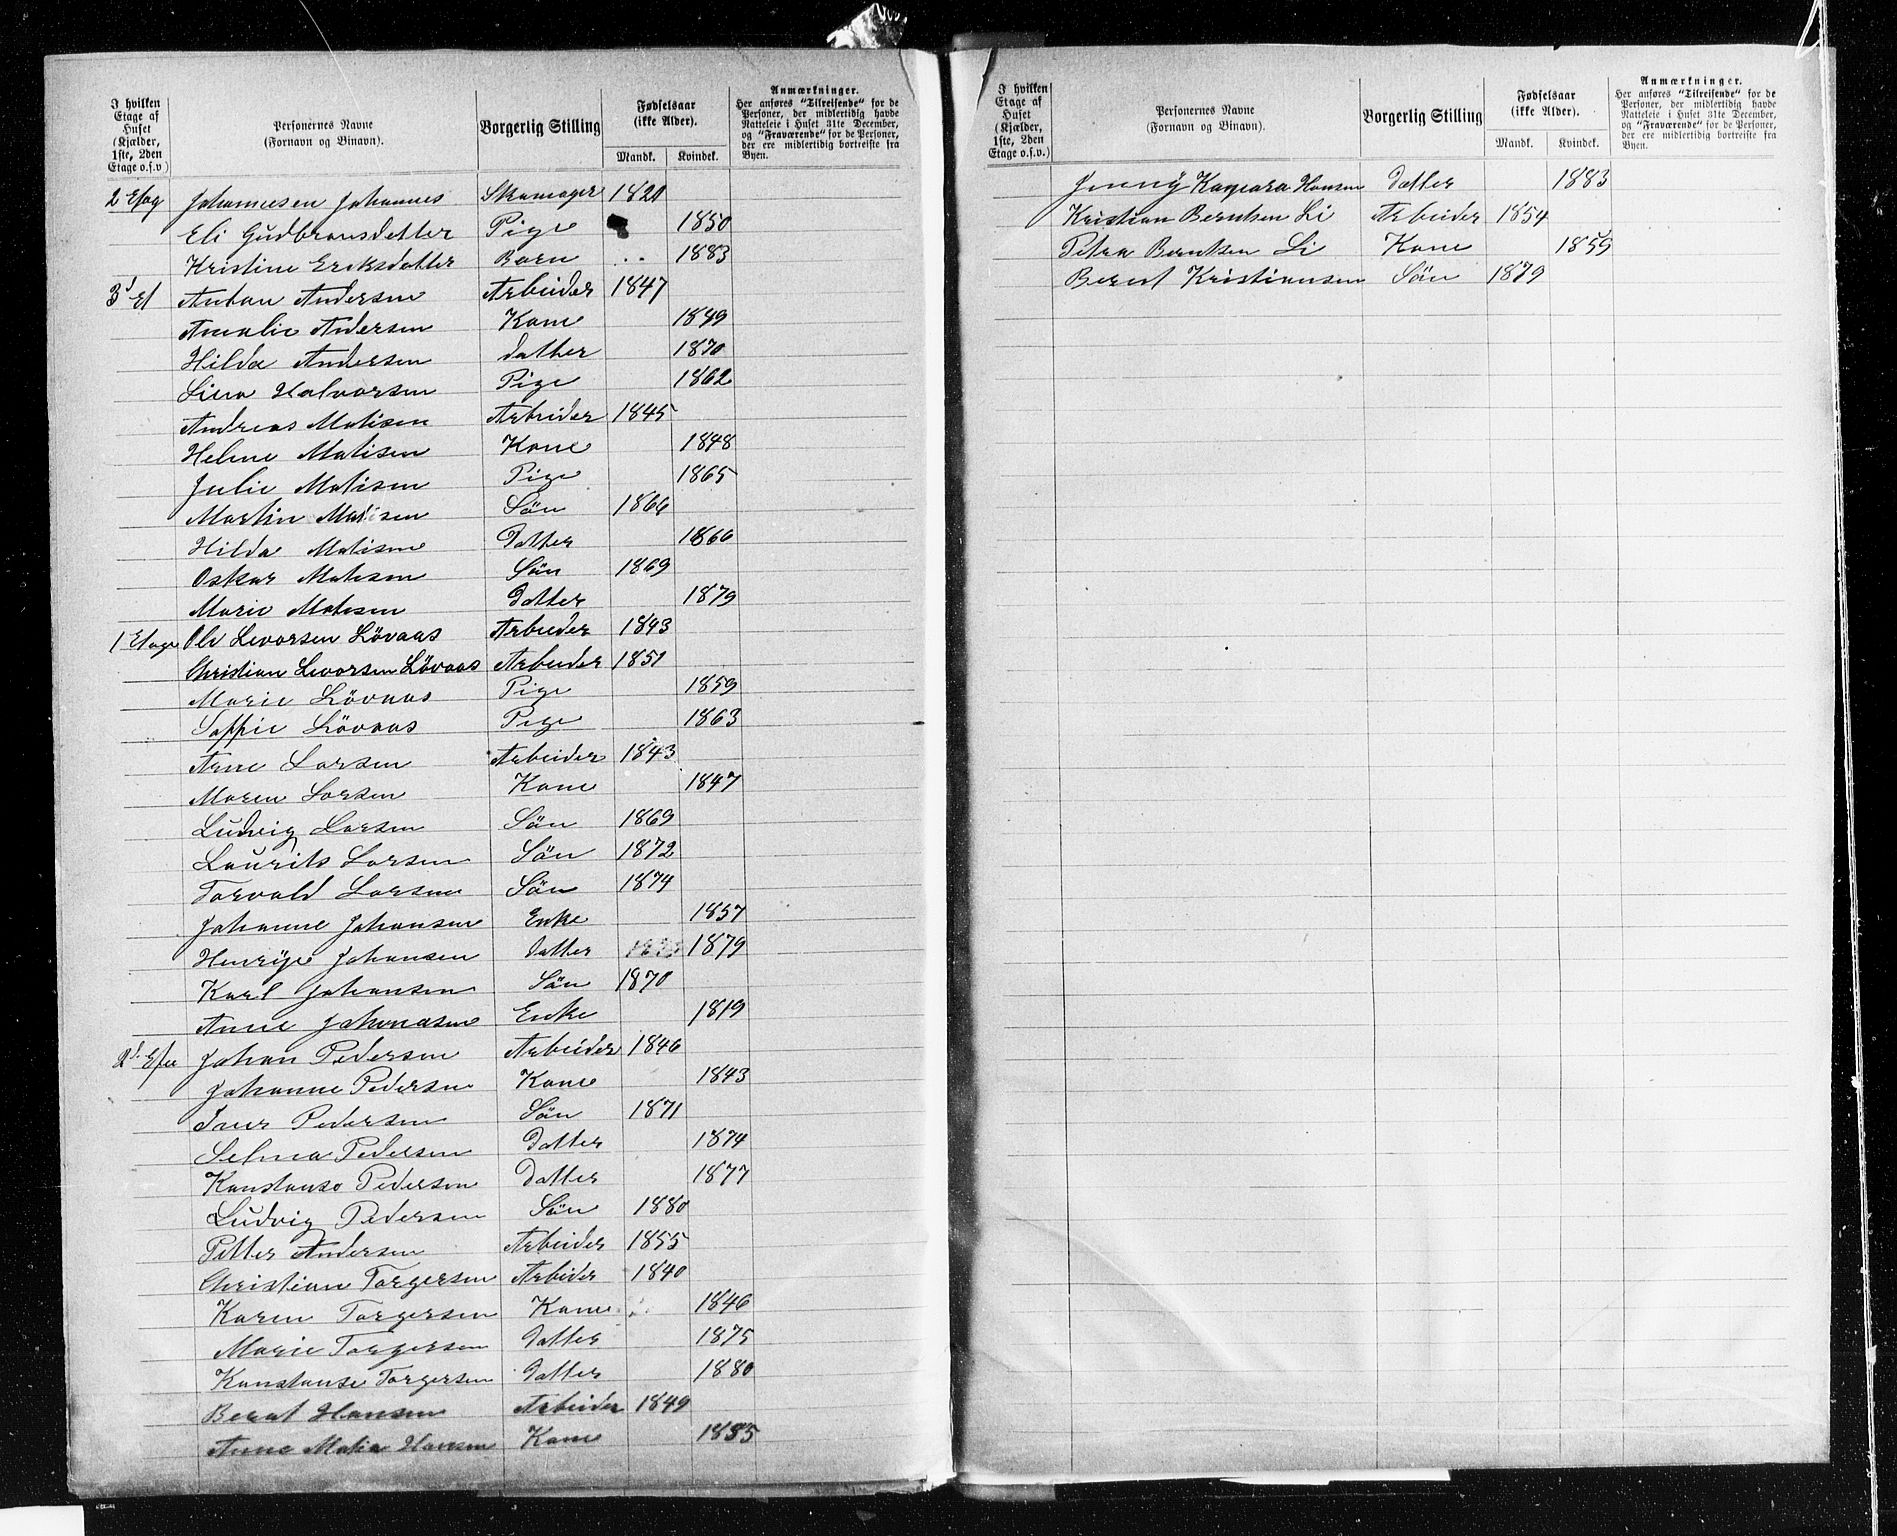 I hvilken Etage af Huset (Kjælder, 1ste, 2den Etage o.s.v)
Personernes Navne (Fornavn og Binavn).
Borgerlig Stilling
Fødselsaar (ikke Alder).
Mandk. Kvindek.
Anmærkninger.
Her anføres "Tilreisende" for de Personer, der midlertidig havde Natteleie i Huset 31te December, og "Fraværende" for de Personer, der ere midlertidig bortreiste fra Byen.
2 Etag Johannesen Johannes Skomager 1820
Eli Gudbransdatter Pige 1850
Kristine Eriksdatter Barn 1883
3 Et Anton Andersen Arbeider 1847
Amalie Andersen Kone 1849
Hilda Andersen datter 1870
Lina Halvorsen Pige 1862
Andreas Matisen Arbeider 1845
Helene Matisen Kone 1848
Julie Matisen Pige 1865
Martin Matisen Sön 1866
Hilda Matisen Datter 1866
Oskar Matisen Sön 1869
Marie Matisen Datter 1879
1 Etage Ole Levorsen Lövaas Arbeider 1843
Christian Levorsen Lövaas Arbeider 1851
Marie Lövaas Pige 1859
Soffie Lövaas Pige 1863
Arne Larsen Arbeider 1843
Maren Larsen Kone 1847
Ludvig Larsen Sön 1869
Laurits Larsen Sön 1872
Torvald Larsen Sön 1874
Johanne Johansen Enke 1857
Johansen datter 1879
Karl Johansen Sön 1870
Anne Enke 1819
2d Johan Pedersen Arbeider 1846
Johanne Pedersen Kone 1843
Pedersen Sön 1871
Selma Pedersen Datter 1874
Konstanse Pedersen Datter 1877
Ludvig Pedersen Sön 1880
Petter Andersen Arbeider 1855
Christian Torgersen Arbeider 1840
Karen Torgersen Kone 1846
Marie Torgersen Datter 1875
Konstanse Torgersen Datter 1880
Bernt Hansen Arbeider 1849
Anne Hansen Kone 1855
I hvilken Etage af Huset (Kjælder, 1ste, 2den Etage o.s.v.)
Personernes Navne (Fornavn og Binavn).
Borgerlig Stilling
Fødselsaar (ikke Alder).
Mandk. Kvindek.
Anmærkninger.
Her anføres "Tilreisende" for de Personer, der midlertidig havde Natteleie i Huset 31te December, og "Fraværende" for de Personer, der ere midlertidig bortreiste fra Byen.
Jenny Hansen Datter 1883
Kristian Berntsen Li Arbeider 1854
Petra Berntsen Li Kone 1859
Bernt Kristiansen Sön 1879